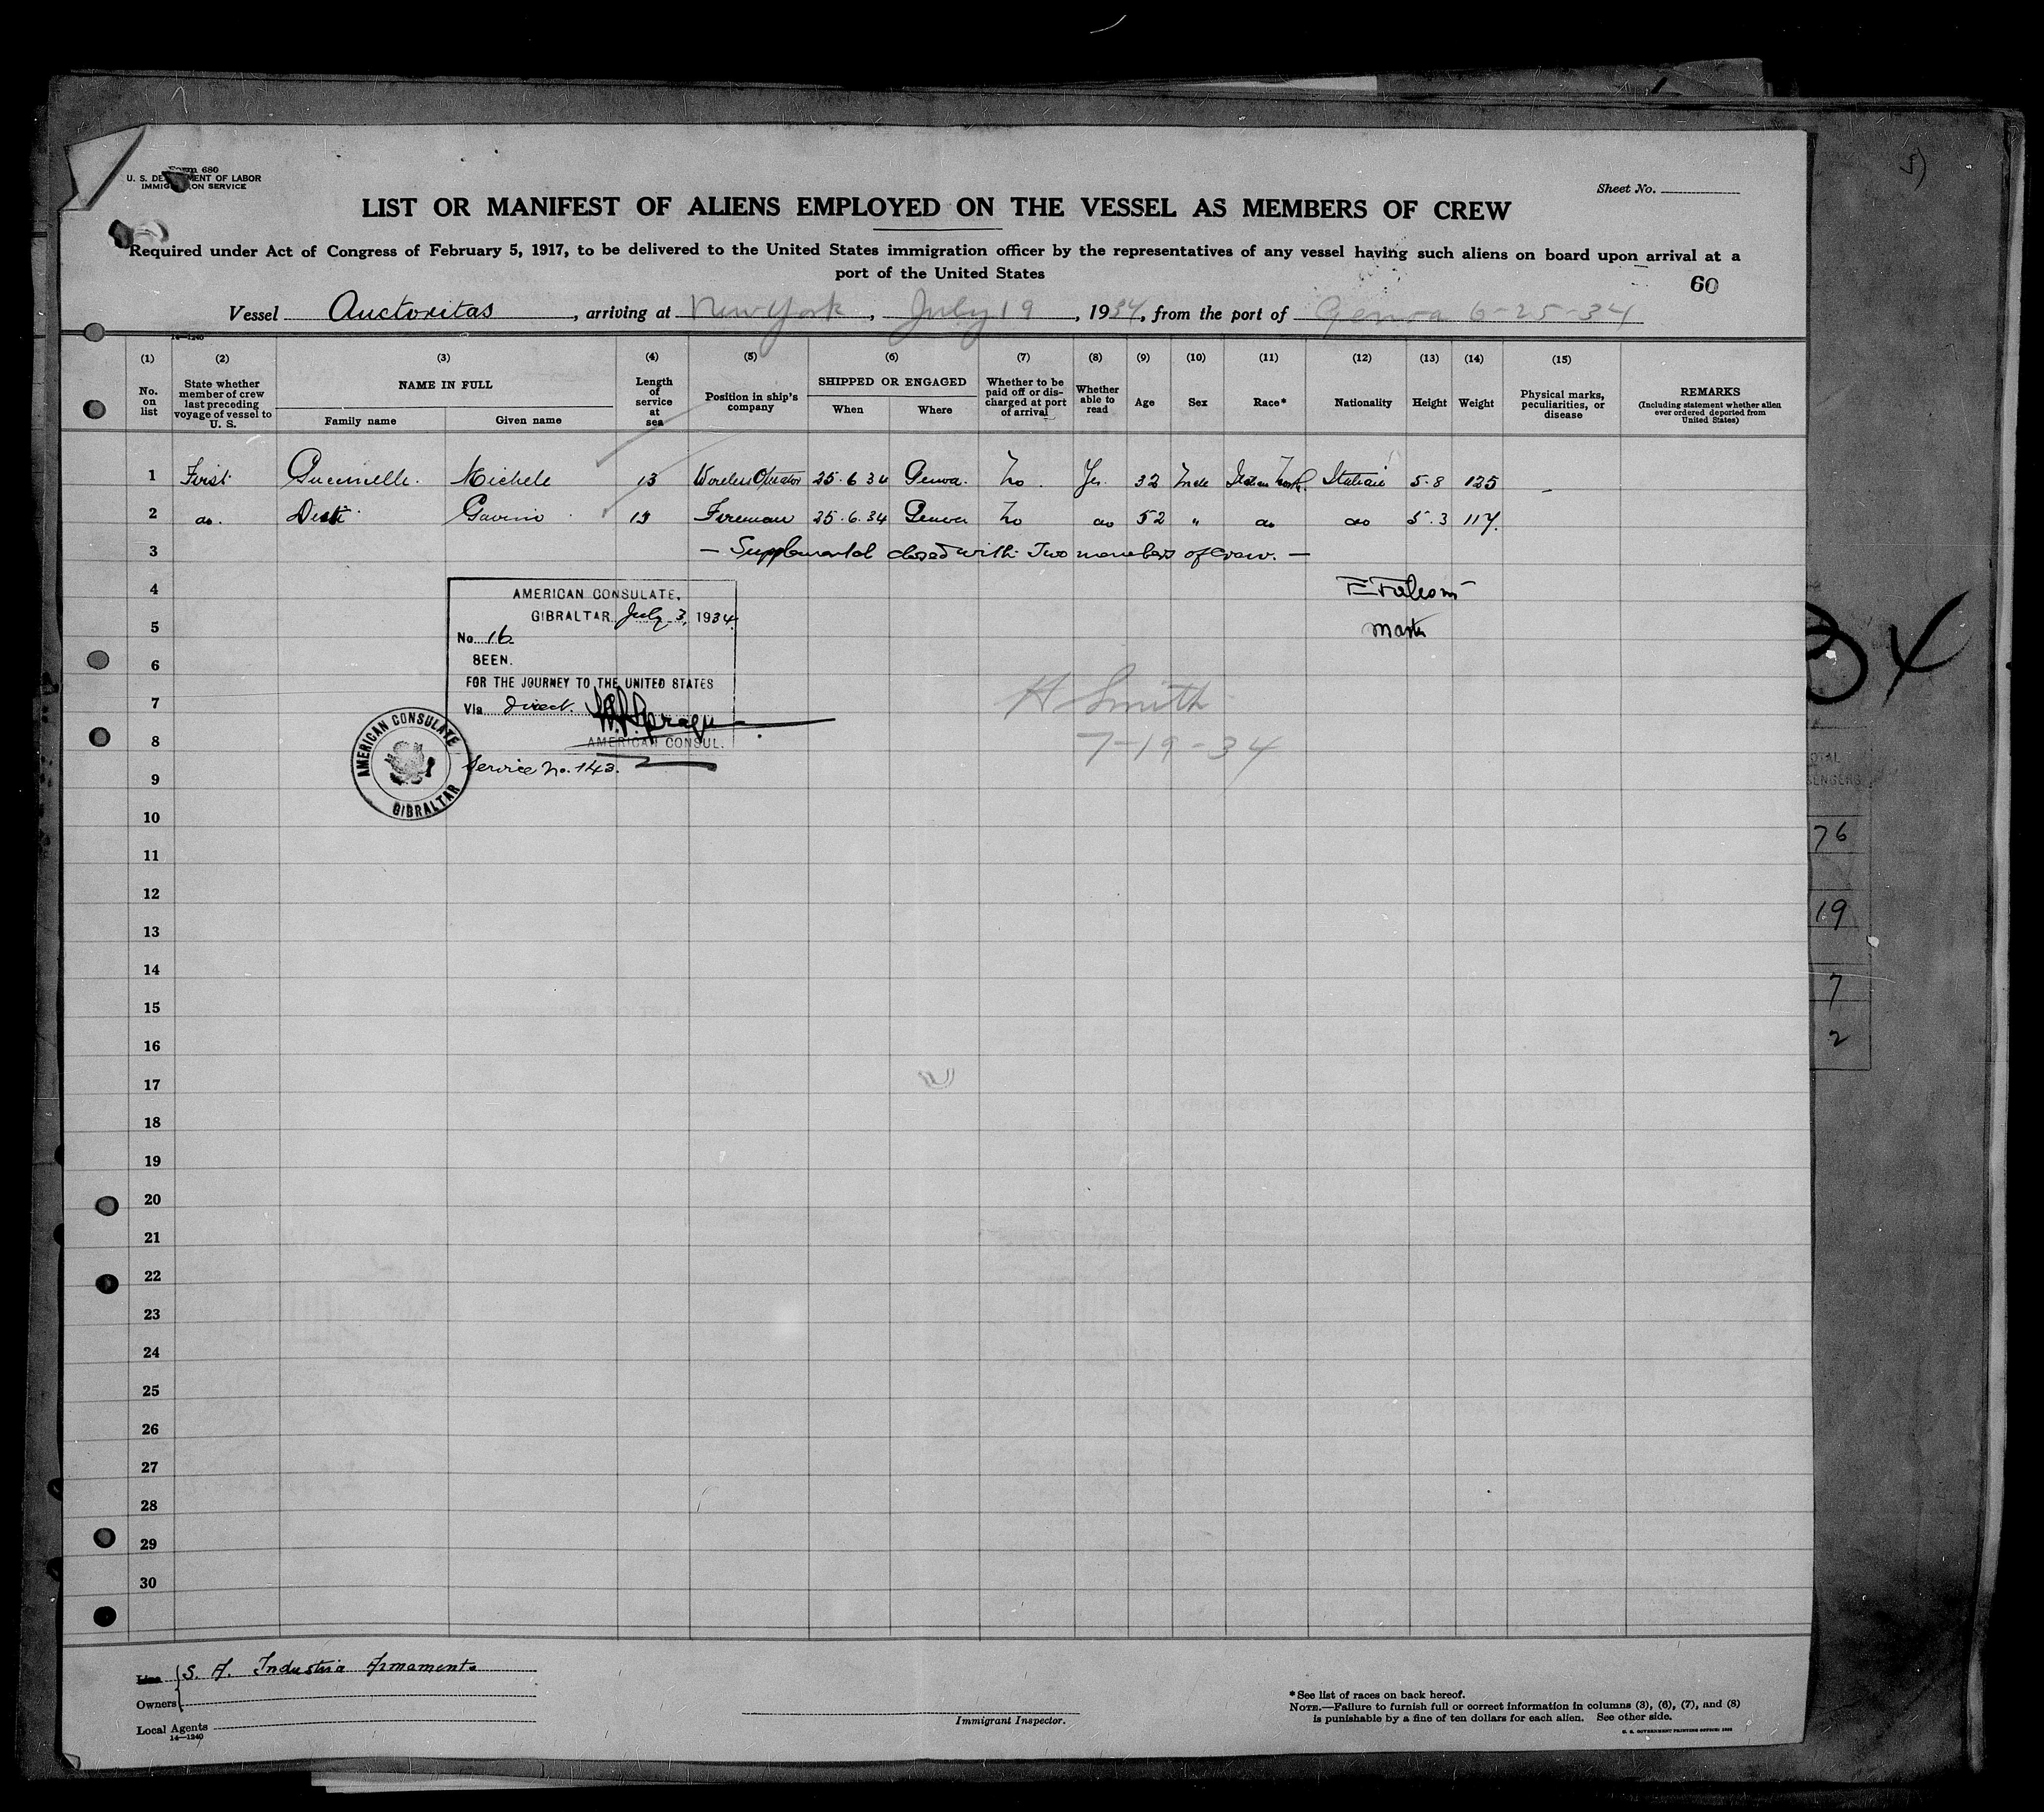 Form 680
U. S. DEPARTMENT OF LABOR
IMMIGRATION SERVICE
Sheet No.
LIST OR MANIFEST OF ALIENS EMPLOYED ON THE VESSEL AS MEMBERS OF CREW
Required under Act of Congress of February 5, 1917, to be delivered to the United States immigration officer by the representatives of any vessel having such aliens on board upon arrival at a
port of the United States
60
Vessel Auctoritas, arriving at New York, July 19, 1934, from the port of Genoa 6-25-34
14—1240
(1) (2) (3) (4) (5) (6) (7) (8) (9) (10) (11) (12) (13) (14) (15)
No. on list
State whether member of crew last preceding voyage of vessel to U. S.
NAME IN FULL
Family name
Given name
Length of service at sea
Position in ship's company
SHIPPED OR ENGAGED
When
Where
Whether to be paid off or discharged at port of arrival
Whether able to read
Age
Sex
Race*
Nationality
Height
Weight
Physical marks, peculiarities, or disease
REMARKS
(Including statement whether alien ever ordered deported from United States)
1 First Michele 13 Wireless Operator 25.6.34 Genoa. No. Yes. 32 Male Italian North. Italian 5.8 125 —
2 do. Gavino 13 Fireman 25.6.34 Genoa No do 52 " do do 5.3 117.
3 — Supplemental closed with Two members of crew. —
4
Master
5
6
7
8
9
10
11
12
13
14
15
16
17
18
19
20
21
22
23
24
25
26
27
28
29
30
AMERICAN CONSULATE,
GIBRALTAR July 3, 1934.
No. 16
SEEN.
FOR THE JOURNEY TO THE UNITED STATES
Via direct.
AMERICAN CONSUL.
Service No. 143.
AMERICAN CONSULATE
GIBRALTAR
H Smith
7-19-34
76
19
7
2
Line S. A. Industria Armamento
Owners
Local Agents
14—1240
Immigrant Inspector.
*See list of races on back hereof.
NOTE.—Failure to furnish full or correct information in columns (3), (6), (7), and (8)
is punishable by a fine of ten dollars for each alien. See other side.